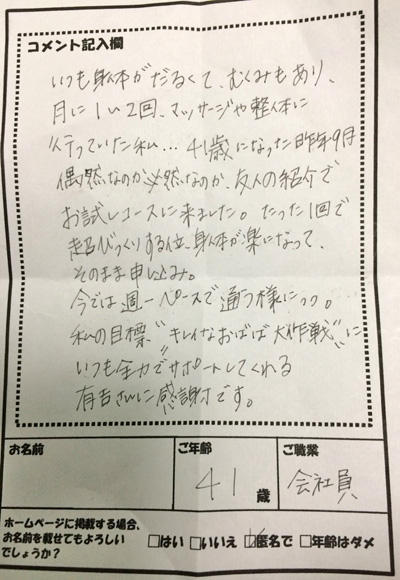 コメント記入欄
いつも身体がだるくて、むくみもあり、
月に1い2回、マッサージや整体に
行っていた私… 41歳になった昨年9月
偶然なのか必然なのか、友人の紹介で
お試しコースに来ました。たった1回で
超びっくりする位、身体が楽になって、
そのまま申し込み。
今では週一ペースで通う様に
私の目標〝キレイなおばば大作戦〟に
いつも全力でサポートしてくれる
有吉さんに感謝です。
お名前 ご年齢 ご職業
41歳 会社員
ホームページに掲載する場合、
お名前を載せてもよろしい
でしょうか?
□はい □いいえ ☑匿名で □年齢はダメ